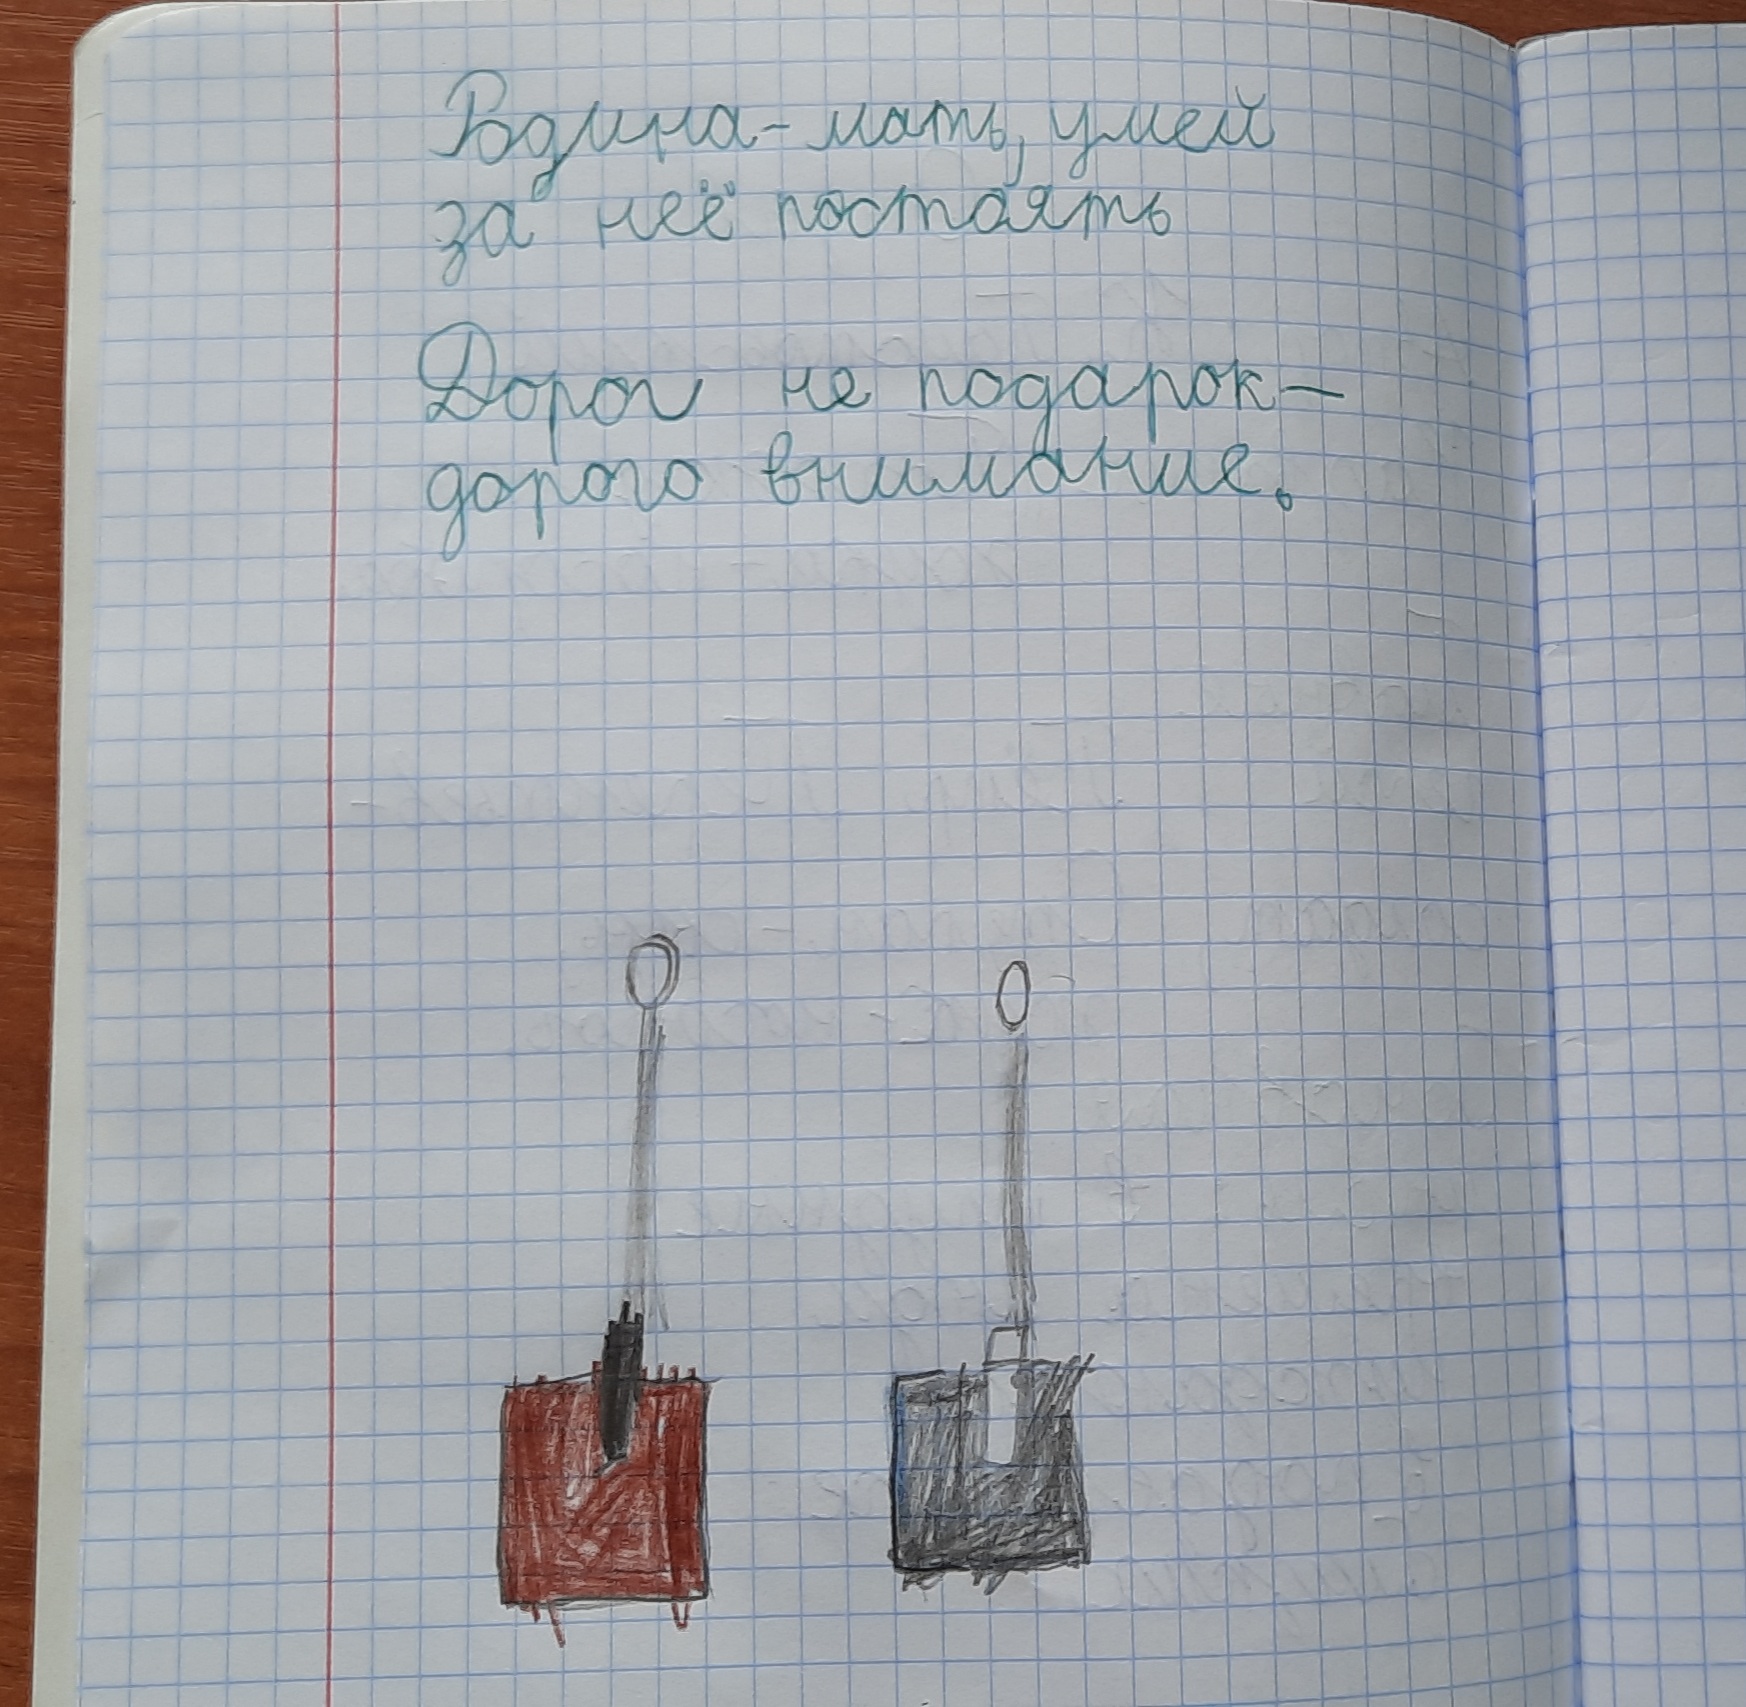 Родина-мать, умей
за неё постоять
Дорог не подарок-
дорого внимание.